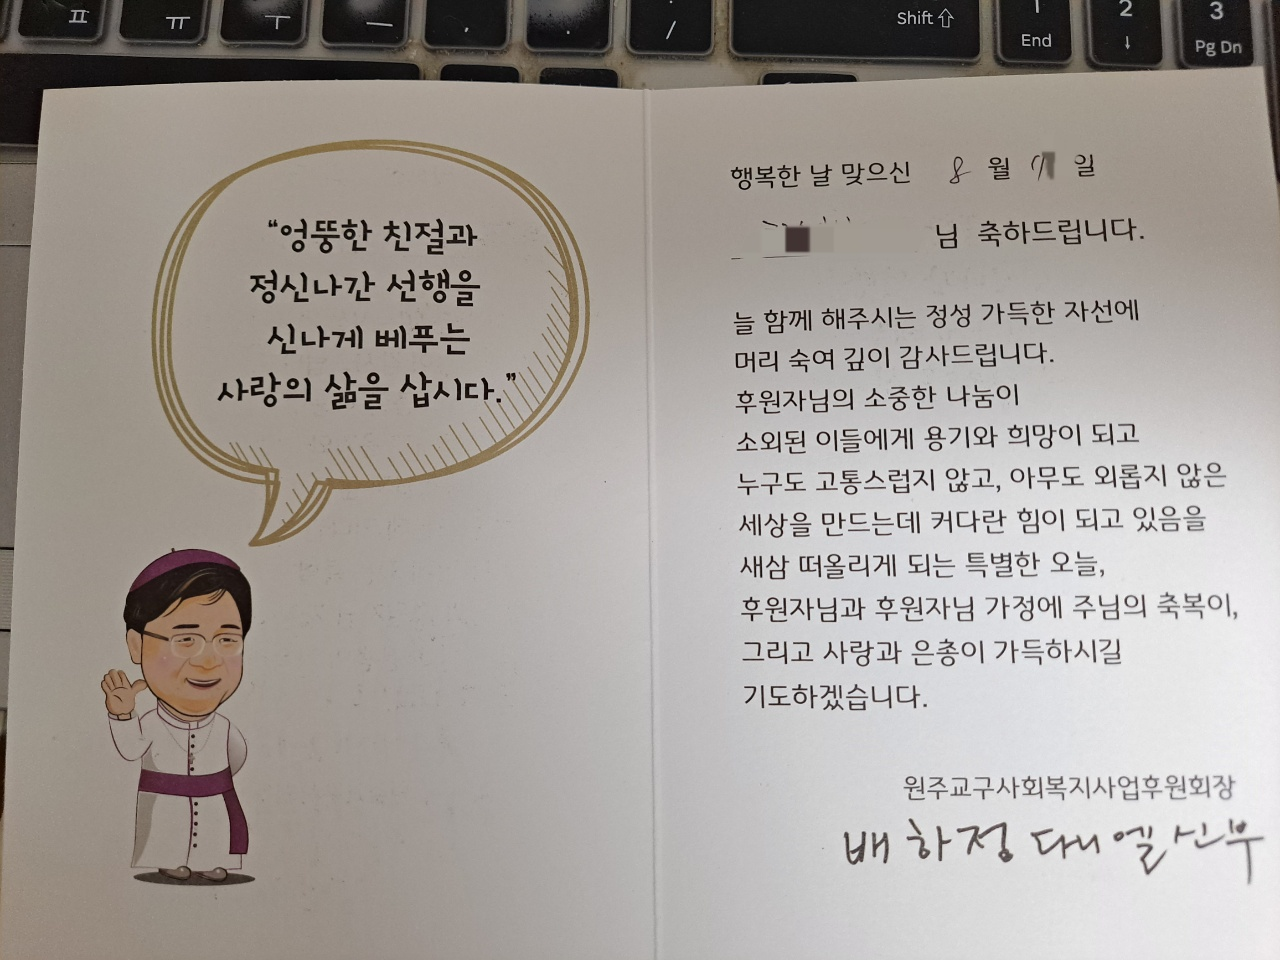 ㅍ
ㅠ
ㅜ
ㅡ
,
.
/
Shift
1
End
2
↓
3
Pg Dn
“엉뚱한 친절과
정신나간 선행을
신나게 베푸는
사랑의 삶을 삽시다.”
행복한 날 맞으신 8 월 일
님 축하드립니다.
늘 함께 해주시는 정성 가득한 자선에
머리 숙여 깊이 감사드립니다.
후원자님의 소중한 나눔이
소외된 이들에게 용기와 희망이 되고
누구도 고통스럽지 않고, 아무도 외롭지 않은
세상을 만드는데 커다란 힘이 되고 있음을
새삼 떠올리게 되는 특별한 오늘,
후원자님과 후원자님 가정에 주님의 축복이,
그리고 사랑과 은총이 가득하시길
기도하겠습니다.
원주교구사회복지사업후원회장
배하정 다니엘 신부